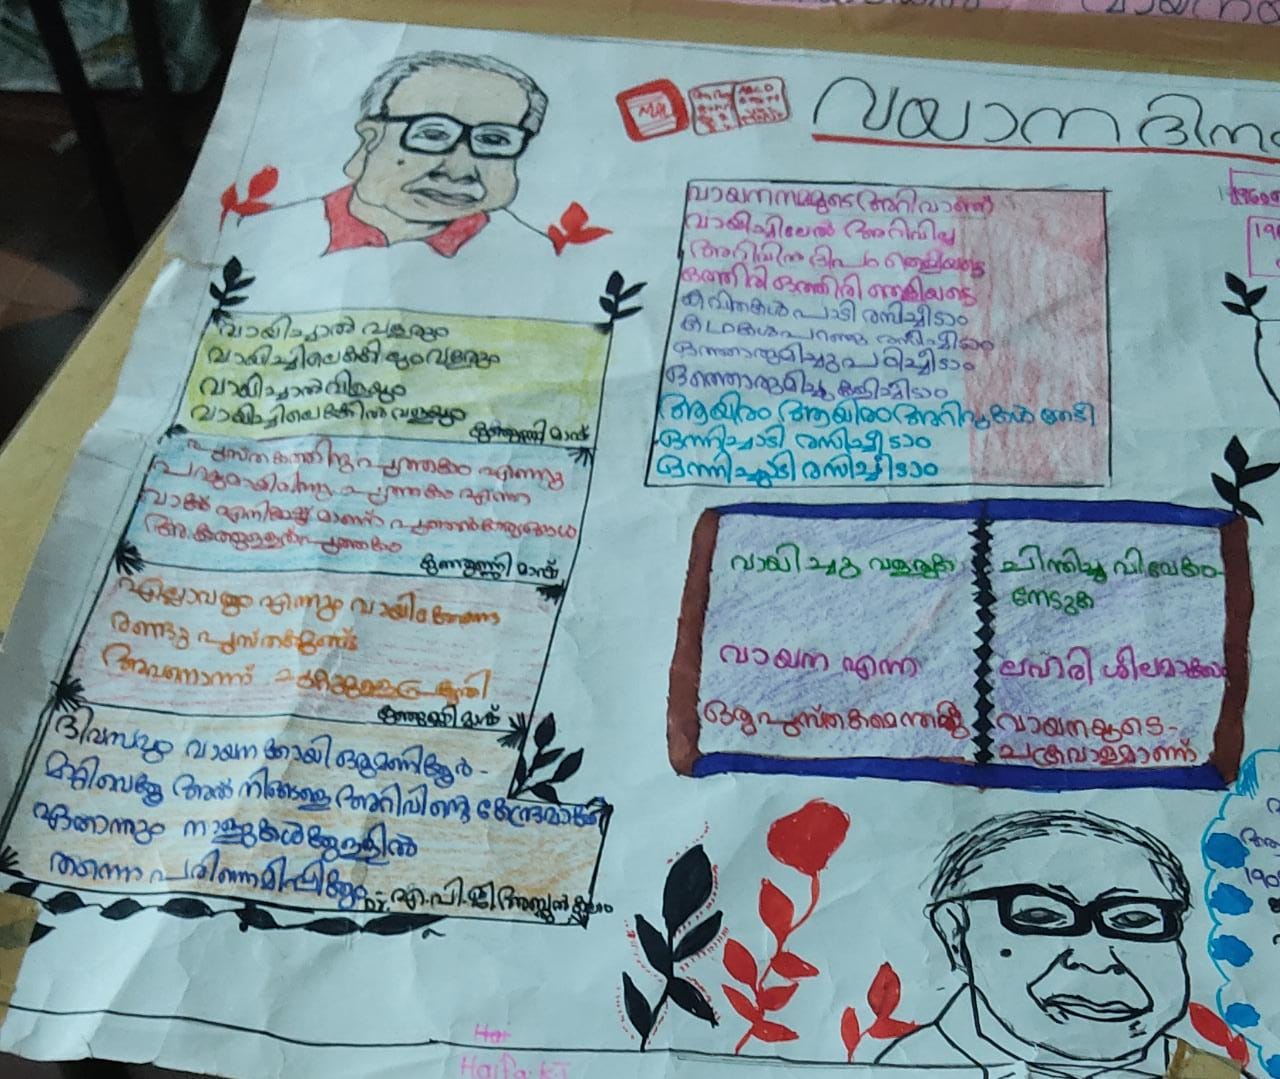 വയാന ദിനം
വായന നമ്മുടെ അറിവാണ്
വായിച്ചില്ലേൽ അറിവില്ല
അറിവിന ദീപം തെളിയട്ടെ
ഒത്തിരി ഒത്തിരി തെളിയട്ടെ
കവിതകൾ പാടി രസിച്ചീടാം
കഥകൾ പറഞ്ഞു രസിച്ചീടാം
ഒത്തൊരുമിച്ചു പഠിച്ചീടാം
ഒത്തൊരുമിച്ചു കളിച്ചീടാം
ആയിരം ആയിരം അറിവുകൾ തേടി
ഒന്നിച്ചാടി രസിച്ചീടാം
ഒന്നിച്ചുടി രസിച്ചീടാം
വായിച്ചാൽ വളരും
വായിച്ചിലെങ്കിലും വളരും
വായിച്ചാൽ വിളയും
വായിച്ചിലെങ്കിൽ വളയും
കുഞ്ഞുണ്ണി മാഷ്
പുസ്തകത്തിനു പുത്തകം എന്നു
പറയുമായിരുന്നു പുത്തകം എന്ന
വാക്ക് എനിക്കിഷ്ടമാണ് പുത്തൻ
അകത്തുള്ളത് പുത്തകം
കുഞ്ഞുണ്ണി മാഷ്
എല്ലാവരും എന്നും വായിക്കേണ്ട
രണ്ടു പുസ്തകമുണ്ട്
അവനൊന്ന് ചുറ്റുമുള്ള പ്രകൃതി
കുഞ്ഞുണ്ണി മാഷ്
ദിവസവും വായനക്കായി ഒരു മണിക്കൂർ -
മറ്റിവെക്കൂ അത് നിങ്ങളെ അറിവിന്റെ കേന്ദ്രമാക്കി
ഏതാനും നാളുകൾക്കുള്ളിൽ
തന്നെ പരിണമിപ്പിക്കും
by എ.പി.ജി അബ്ദുൽ കലാം
വായിച്ചു വളരുക
ചിന്തിച്ചു വിവേകം
നേടുക
വായന എന്ന
ലഹരി ശീലമാക്കൂ
ഒരു പുസ്തകമെന്നത്
വായനയുടെ -
ചക്രവാളമാണ്
Haifa. K.T